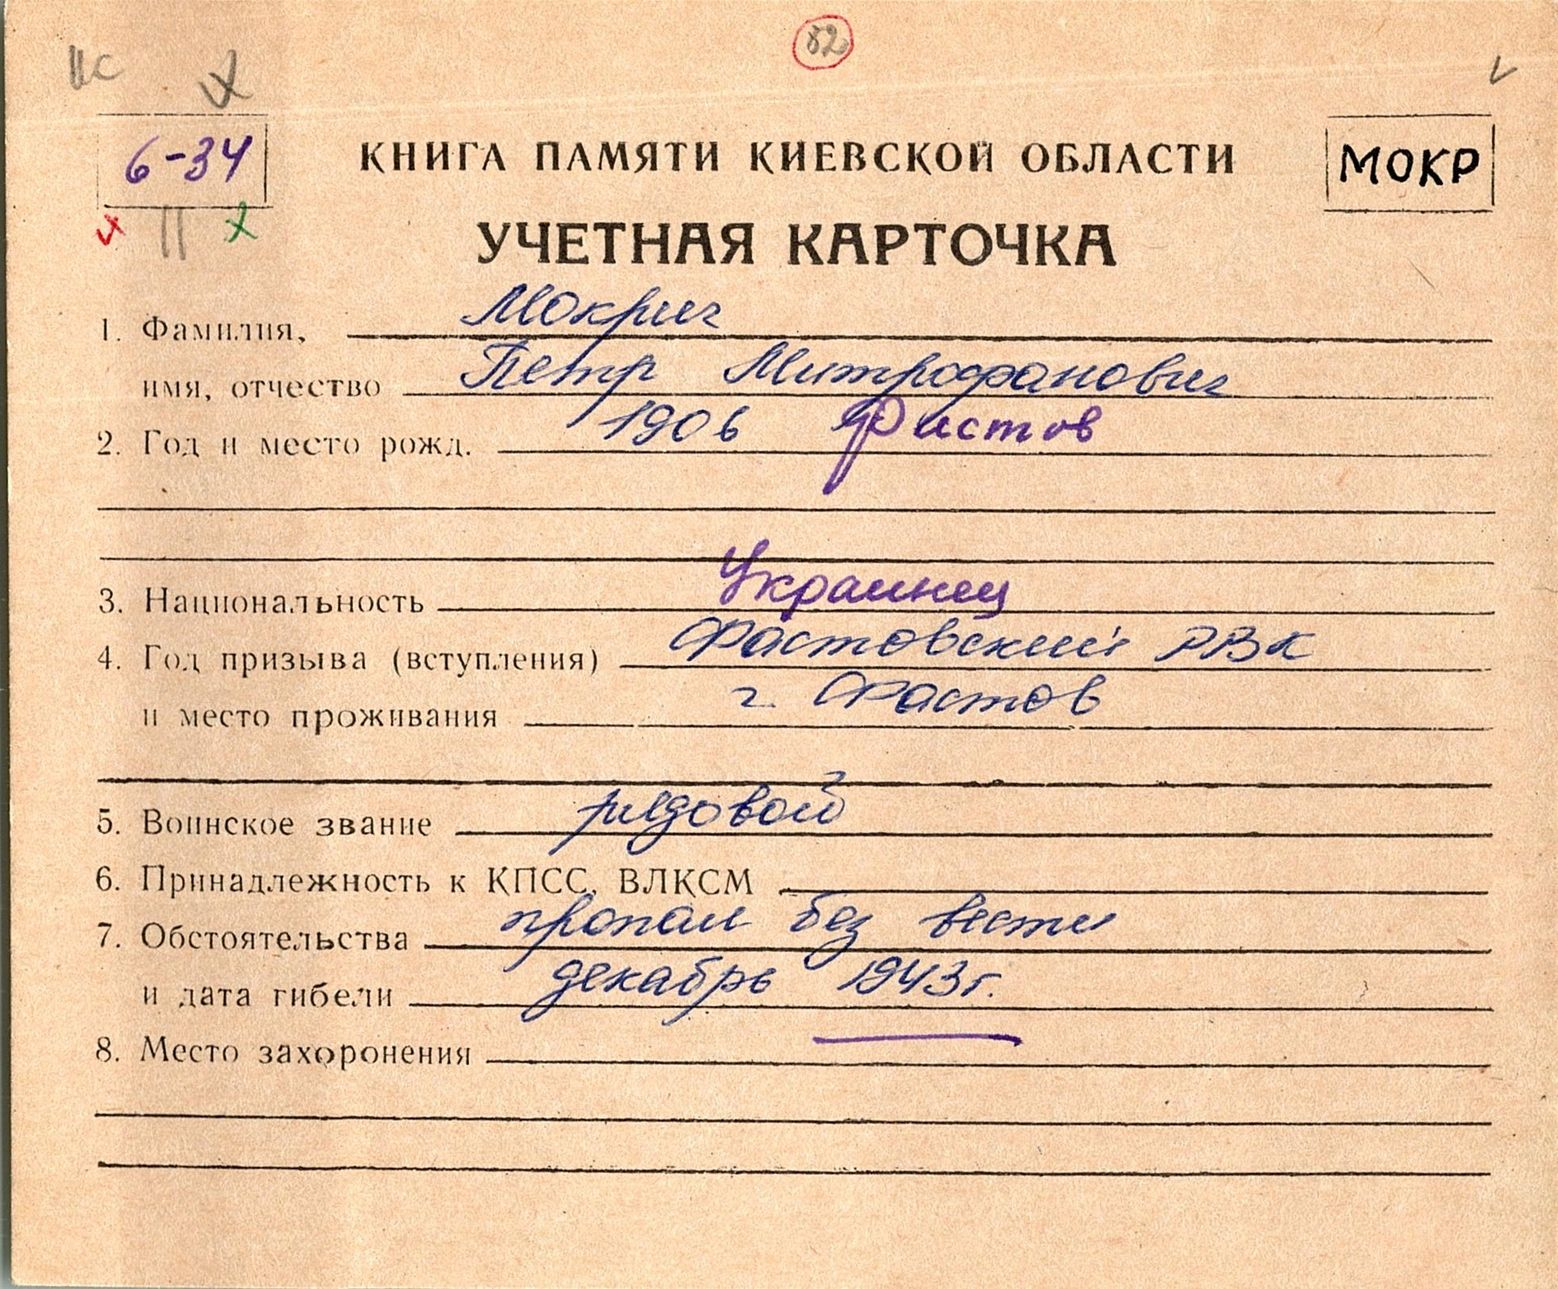 82
6-34
КНИГА ПАМЯТИ КИЕВСКОЙ ОБЛАСТИ
МОКР
УЧЕТНАЯ КАРТОЧКА
1. Фамилия, Мокрич
имя, отчество Петр Митрофанович
2. Год и место рожд. 1906 Фастов
3. Национальность Украинец
4. Год призыва (вступления) Фастовский РВК
и место проживания г. Фастов
5. Воинское звание рядовой
6. Принадлежность к КПСС, ВЛКСМ
7. Обстоятельства пропал без вести
и дата гибели декабрь 1943г.
8. Место захоронения